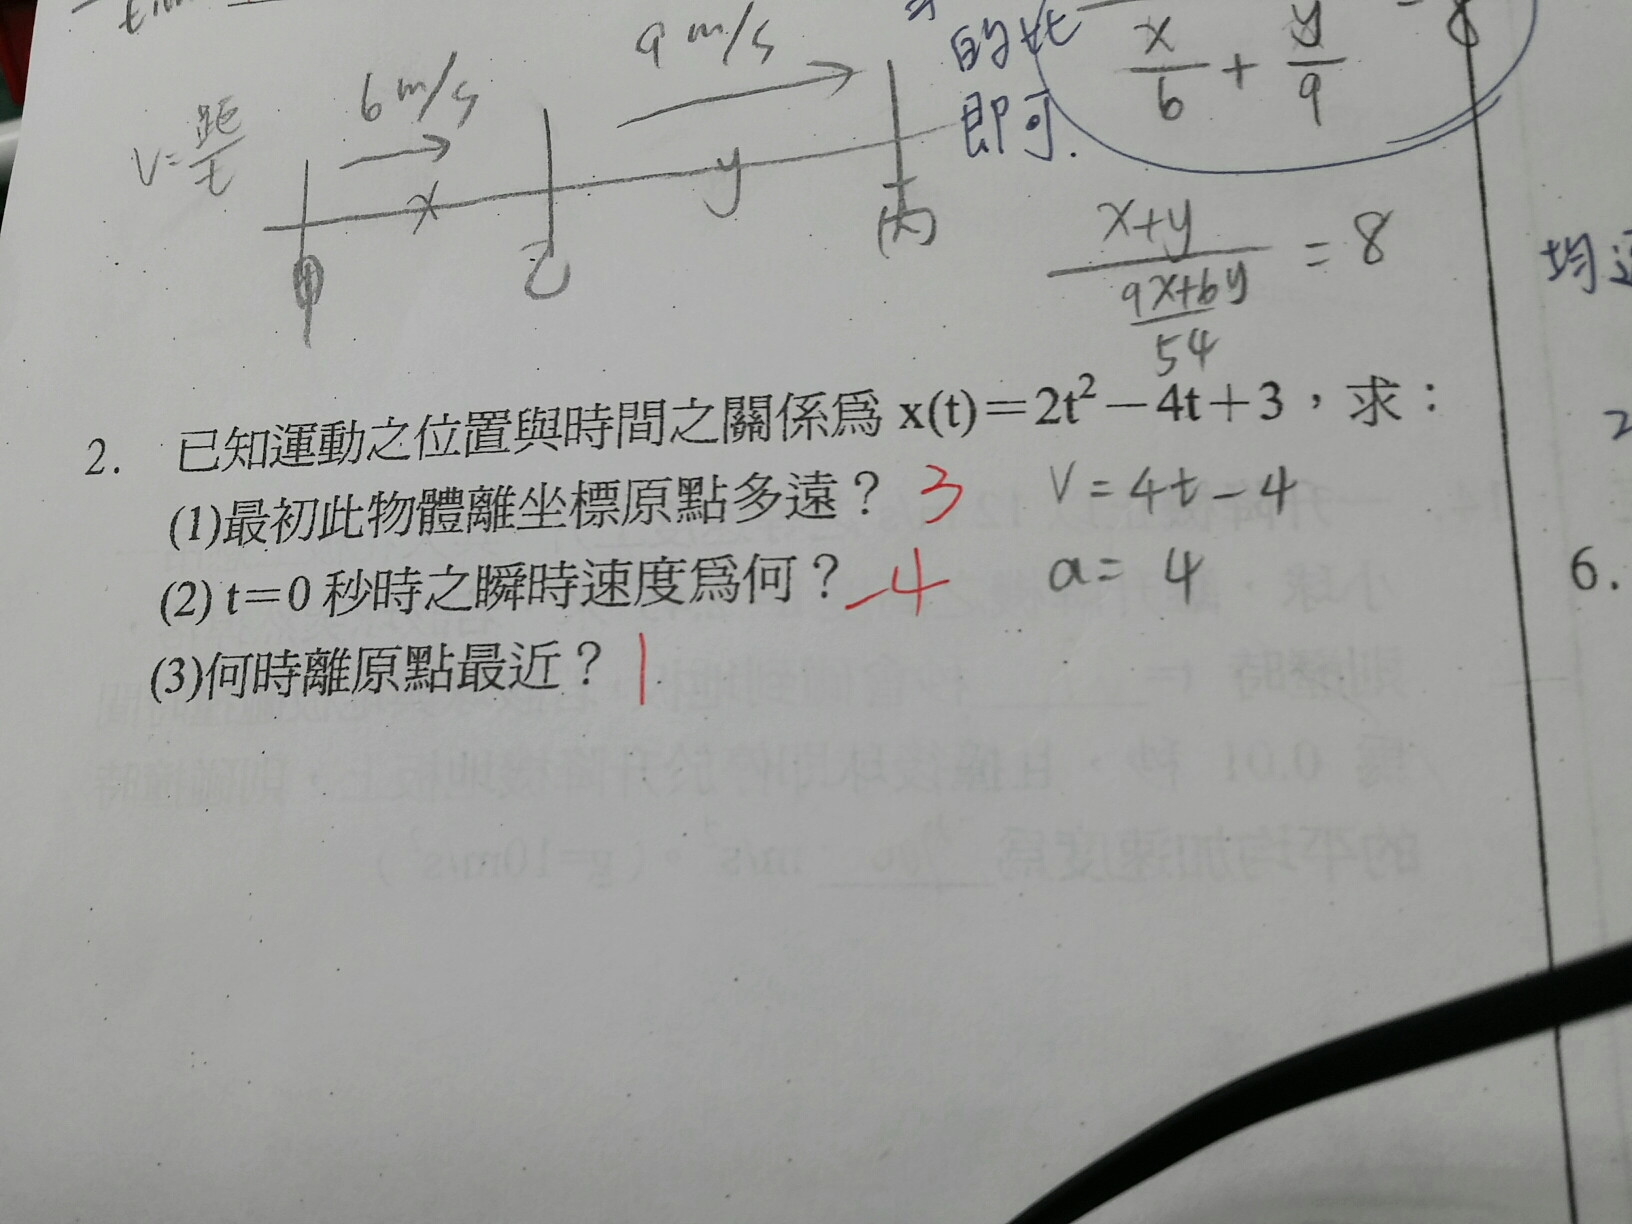 6 m/s
9 m/s
V=距/t
x
y
甲
乙
丙
的比
即可.
x/6 + y/9
(x+y)/((9x+6y)/54) = 8
2. 已知運動之位置與時間之關係為 x(t)＝2t²－4t＋3，求：
(1)最初此物體離坐標原點多遠？ 3
V = 4t - 4
(2) t＝0 秒時之瞬時速度為何？ -4
a = 4
(3)何時離原點最近？ 1
均
2
6.